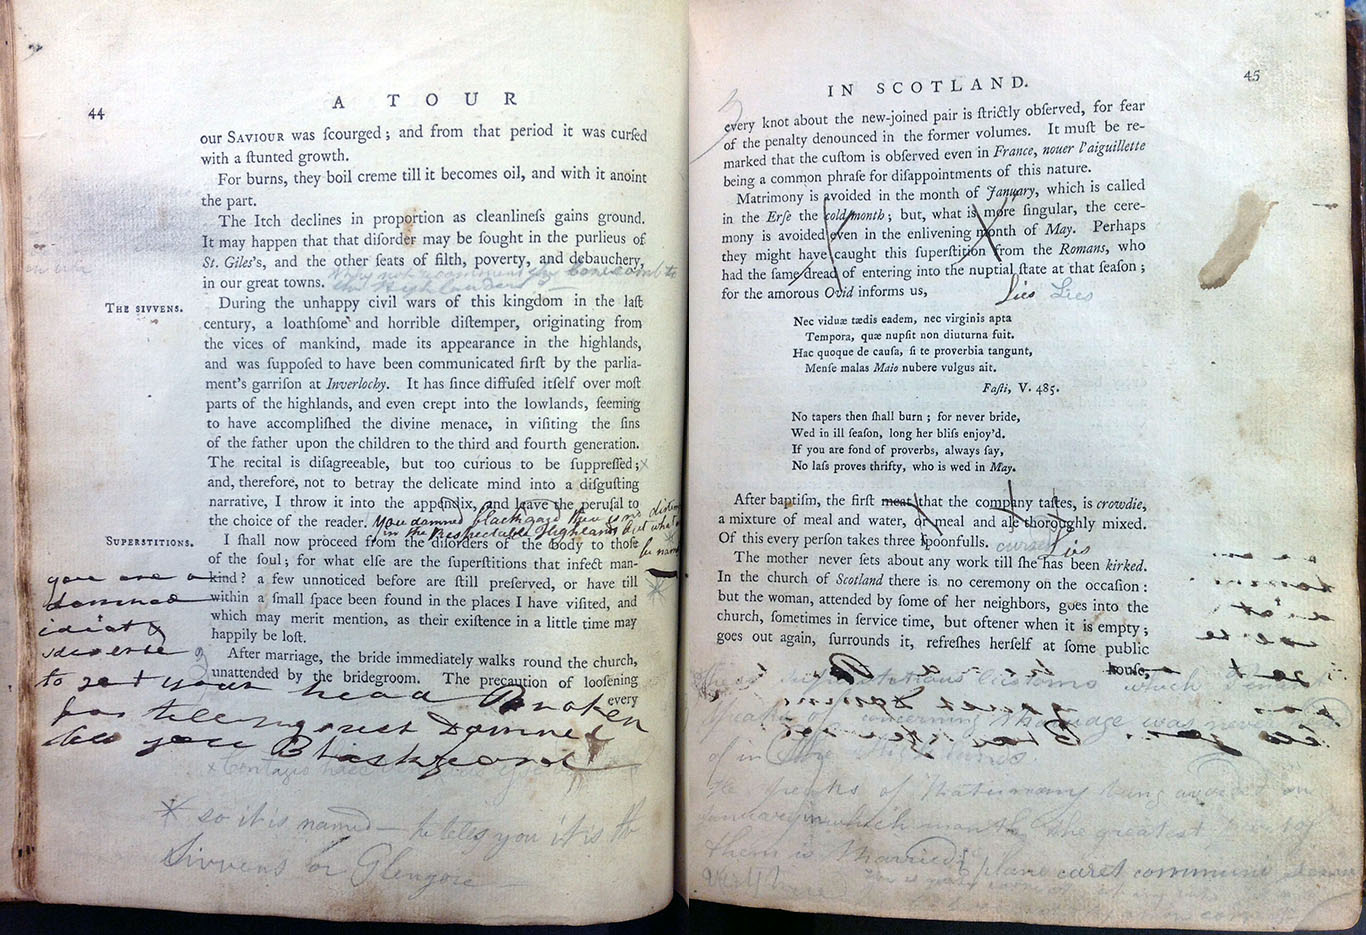 44
A TOUR
our SAVIOUR was ſcourged; and from that period it was curſed
with a ſtunted growth.
For burns, they boil creme till it becomes oil, and with it anoint
the part.
The Itch declines in proportion as cleanlineſs gains ground.
It may happen that that diſorder may be ſought in the purlieus of
St. Giles's, and the other ſeats of filth, poverty, and debauchery,
in our great towns.
THE SIVVENS.
During the unhappy civil wars of this kingdom in the laſt
century, a loathſome and horrible diſtemper, originating from
the vices of mankind, made its appearance in the highlands,
and was ſuppoſed to have been communicated firſt by the parlia-
ment's garriſon at Inverlochy. It has ſince diffuſed itſelf over moſt
parts of the highlands, and even crept into the lowlands, ſeeming
to have accompliſhed the divine menace, in viſiting the ſins
of the father upon the children to the third and fourth generation.
The recital is diſagreeable, but too curious to be ſuppreſſed;
and, therefore, not to betray the delicate mind into a diſguſting
narrative, I throw it into the appendix, and leave the peruſal to
the choice of the reader.
you damned blackgard
in the respectable Highlands but what
SUPERSTITIONS.
I ſhall now proceed from the diſorders of the body to thoſe
of the ſoul; for what elſe are the ſuperſtitions that infect man-
kind? a few unnoticed before are ſtill preſerved, or have till
within a ſmall ſpace been found in the places I have viſited, and
which may merit mention, as their exiſtence in a little time may
happily be loſt.
After marriage, the bride immediately walks round the church,
unattended by the bridegroom. The precaution of looſening
every
you are a
damned
idiot &
to get your head Broken
for telling
you Blackgard
* so it is named — he tells you it is the
Sivvens or Glengore
IN SCOTLAND.
45
every knot about the new-joined pair is ſtrictly obſerved, for fear
of the penalty denounced in the former volumes. It muſt be re-
marked that the cuſtom is obſerved even in France, nouer l'aiguillette
being a common phraſe for diſappointments of this nature.
Matrimony is avoided in the month of January, which is called
in the Erſe the cold month; but, what is more ſingular, the cere-
mony is avoided even in the enlivening month of May. Perhaps
they might have caught this ſuperſtition from the Romans, who
had the ſame dread of entering into the nuptial ſtate at that ſeaſon;
for the amorous Ovid informs us,
Lies Lies
Nec viduæ tædis eadem, nec virginis apta
Tempora, quæ nupſit non diuturna fuit.
Hac quoque de cauſa, ſi te proverbia tangunt,
Menſe malas Maio nubere vulgus ait.
Faſti, V. 485.
No tapers then ſhall burn; for never bride,
Wed in ill ſeaſon, long her bliſs enjoy'd.
If you are fond of proverbs, always ſay,
No laſs proves thrifty, who is wed in May.
After baptiſm, the firſt meat that the company taſtes, is crowdie,
a mixture of meal and water, or meal and ale thoroughly mixed.
Of this every perſon takes three ſpoonfulls.
Lies
The mother never ſets about any work till ſhe has been kirked.
In the church of Scotland there is no ceremony on the occaſion:
but the woman, attended by ſome of her neighbors, goes into the
church, ſometimes in ſervice time, but oftener when it is empty;
goes out again, ſurrounds it, refreſhes herſelf at ſome public
houſe,
customs which
concerning Marriage was never
of in the Highlands.
He speaks of Matrimony being avoided in
January in which month the greatest
them is Married